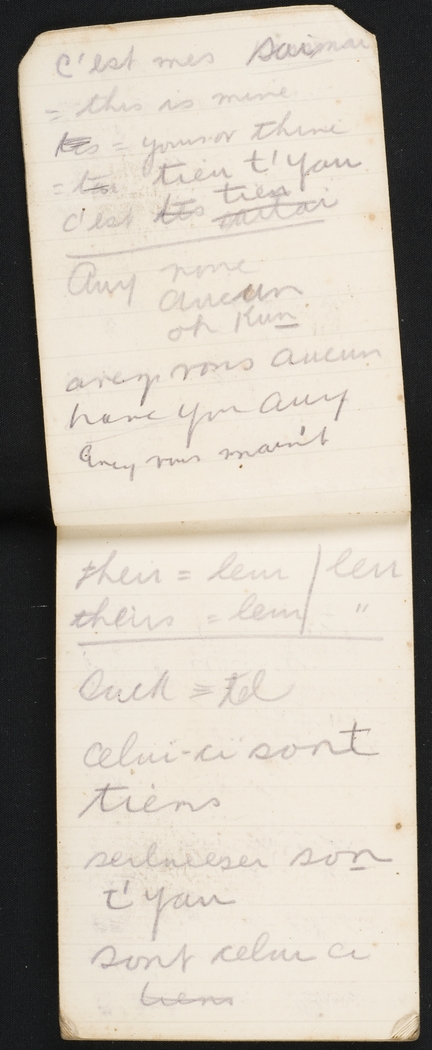 c'est mes saimai
= this is mine
tes = yours or thine
= tes tien t'yan
c'est tes tien
Any none
aucun
oh Kun
avez vous aucun
have you any
avey vous
their = leur / leur
theirs = leur / "
Such = tel
celui-ci sont
tiens
serlueeser son
t'yan
sont celui ci
tiens